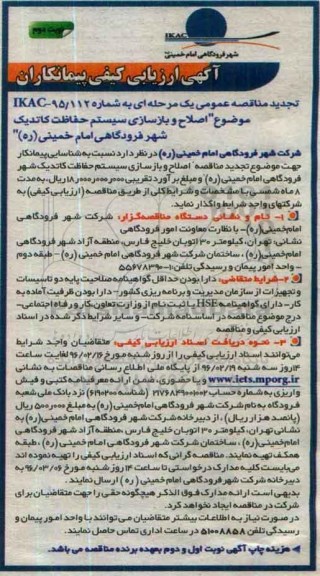 نوبت دوم
IKAC
شهر فرودگاهی امام خمینی (ره)
آگهی ارزیابی کیفی پیمانکاران
تجدید مناقصه عمومی یک مرحله ای به شماره IKAC-۹۵/۱۱۲
موضوع "اصلاح و بازسازی سیستم حفاظت کاتدیک
شهر فرودگاهی امام خمینی (ره)"
شرکت شهر فرودگاهی امام خمینی (ره) در نظر دارد نسبت به شناسایی پیمانکار
جهت موضوع تجدید مناقصه "اصلاح و بازسازی سیستم حفاظت کاتدیک شهر
فرودگاهی امام خمینی (ره) و مبلغ برآورد تقریبی ریال، به مدت
۸ ماه شمسی با مشخصات و شرایط کلی از طریق مناقصه (ارزیابی کیفی) به
شرکتهای واجد شرایط واگذار نماید.
۱- نام و نشانی دستگاه مناقصه‌گزار: شرکت شهر فرودگاهی
امام خمینی(ره)- با نظارت معاونت امور فرودگاهی
نشانی: تهران، کیلومتر ۳۰ اتوبان خلیج فارس، منطقه آزاد شهر فرودگاهی
امام خمینی (ره)، ساختمان شرکت شهر فرودگاهی امام خمینی (ره) - طبقه دوم
- واحد امور پیمان و رسیدگی تلفن:
۲-شرایط متقاضی: دارا بودن حداقل گواهینامه صلاحیت پایه دو تاسیسات
و تجهیزات از سازمان مدیریت و برنامه ریزی کشور- دارا بودن ظرفیت آماده به
کار- دارای گواهینامه HSE یا ثبت نام از وزارت تعاون، کار و رفاه اجتماعی -
درج موضوع مناقصه در اساسنامه شرکت- و سایر شرایط ذکر شده در اسناد
ارزیابی کیفی و مناقصه
۳- نحوه دریافت اسناد ارزیابی کیفی: متقاضیان واجد شرایط
می‌توانند اسناد ارزیابی کیفی را از روز شنبه مورخ ۹۶/۰۲/۱۶ لغایت ساعت
۱۴ روز سه شنبه ۹۶/۰۲/۱۹ از پایگاه ملی اطلاع رسانی مناقصات به نشانی
www.iets.mporg.ir و یا حضوری، ضمن ارائه معرفینامه کتبی و فیش
واریزی به شماره حساب نزد بانک ملی شعبه
فرودگاه به نام شرکت شهر فرودگاهی امام خمینی(ره) به مبلغ ۵۰۰,۰۰۰ ریال
(پانصد هزار ریال)، از دبیرخانه شرکت شهر فرودگاهی امام خمینی(ره) به
نشانی تهران، کیلومتر ۳۰ اتوبان خلیج فارس، منطقه آزاد شهر فرودگاهی
امام خمینی (ره)، ساختمان شرکت شهر فرودگاهی امام خمینی (ره)، طبقه
همکف تهیه نمایند. مناقصه گرانی که اسناد ارزیابی کیفی را تهیه نموده اند
می‌بایست کلیه مدارک درخواستی تا ساعت ۱۴ روز شنبه مورخ ۹۶/۰۳/۰۶ به
دبیرخانه شرکت شهر فرودگاهی امام خمینی ( ره ) ارسال نمایند .
بدیهی است ارائه مدارک فوق الذکر هیچگونه حقی را جهت متقاضیان برای
شرکت در مناقصه ایجاد نخواهد کرد.
در صورت نیاز به اطلاعات بیشتر متقاضیان می توانند با واحد امور پیمان و
رسیدگی تلفن ۵۱۰۰۸۸۵۸ در ساعت اداری تماس حاصل نمایند.
هزینه چاپ آگهی نوبت اول و دوم بعهده برنده مناقصه می باشد.